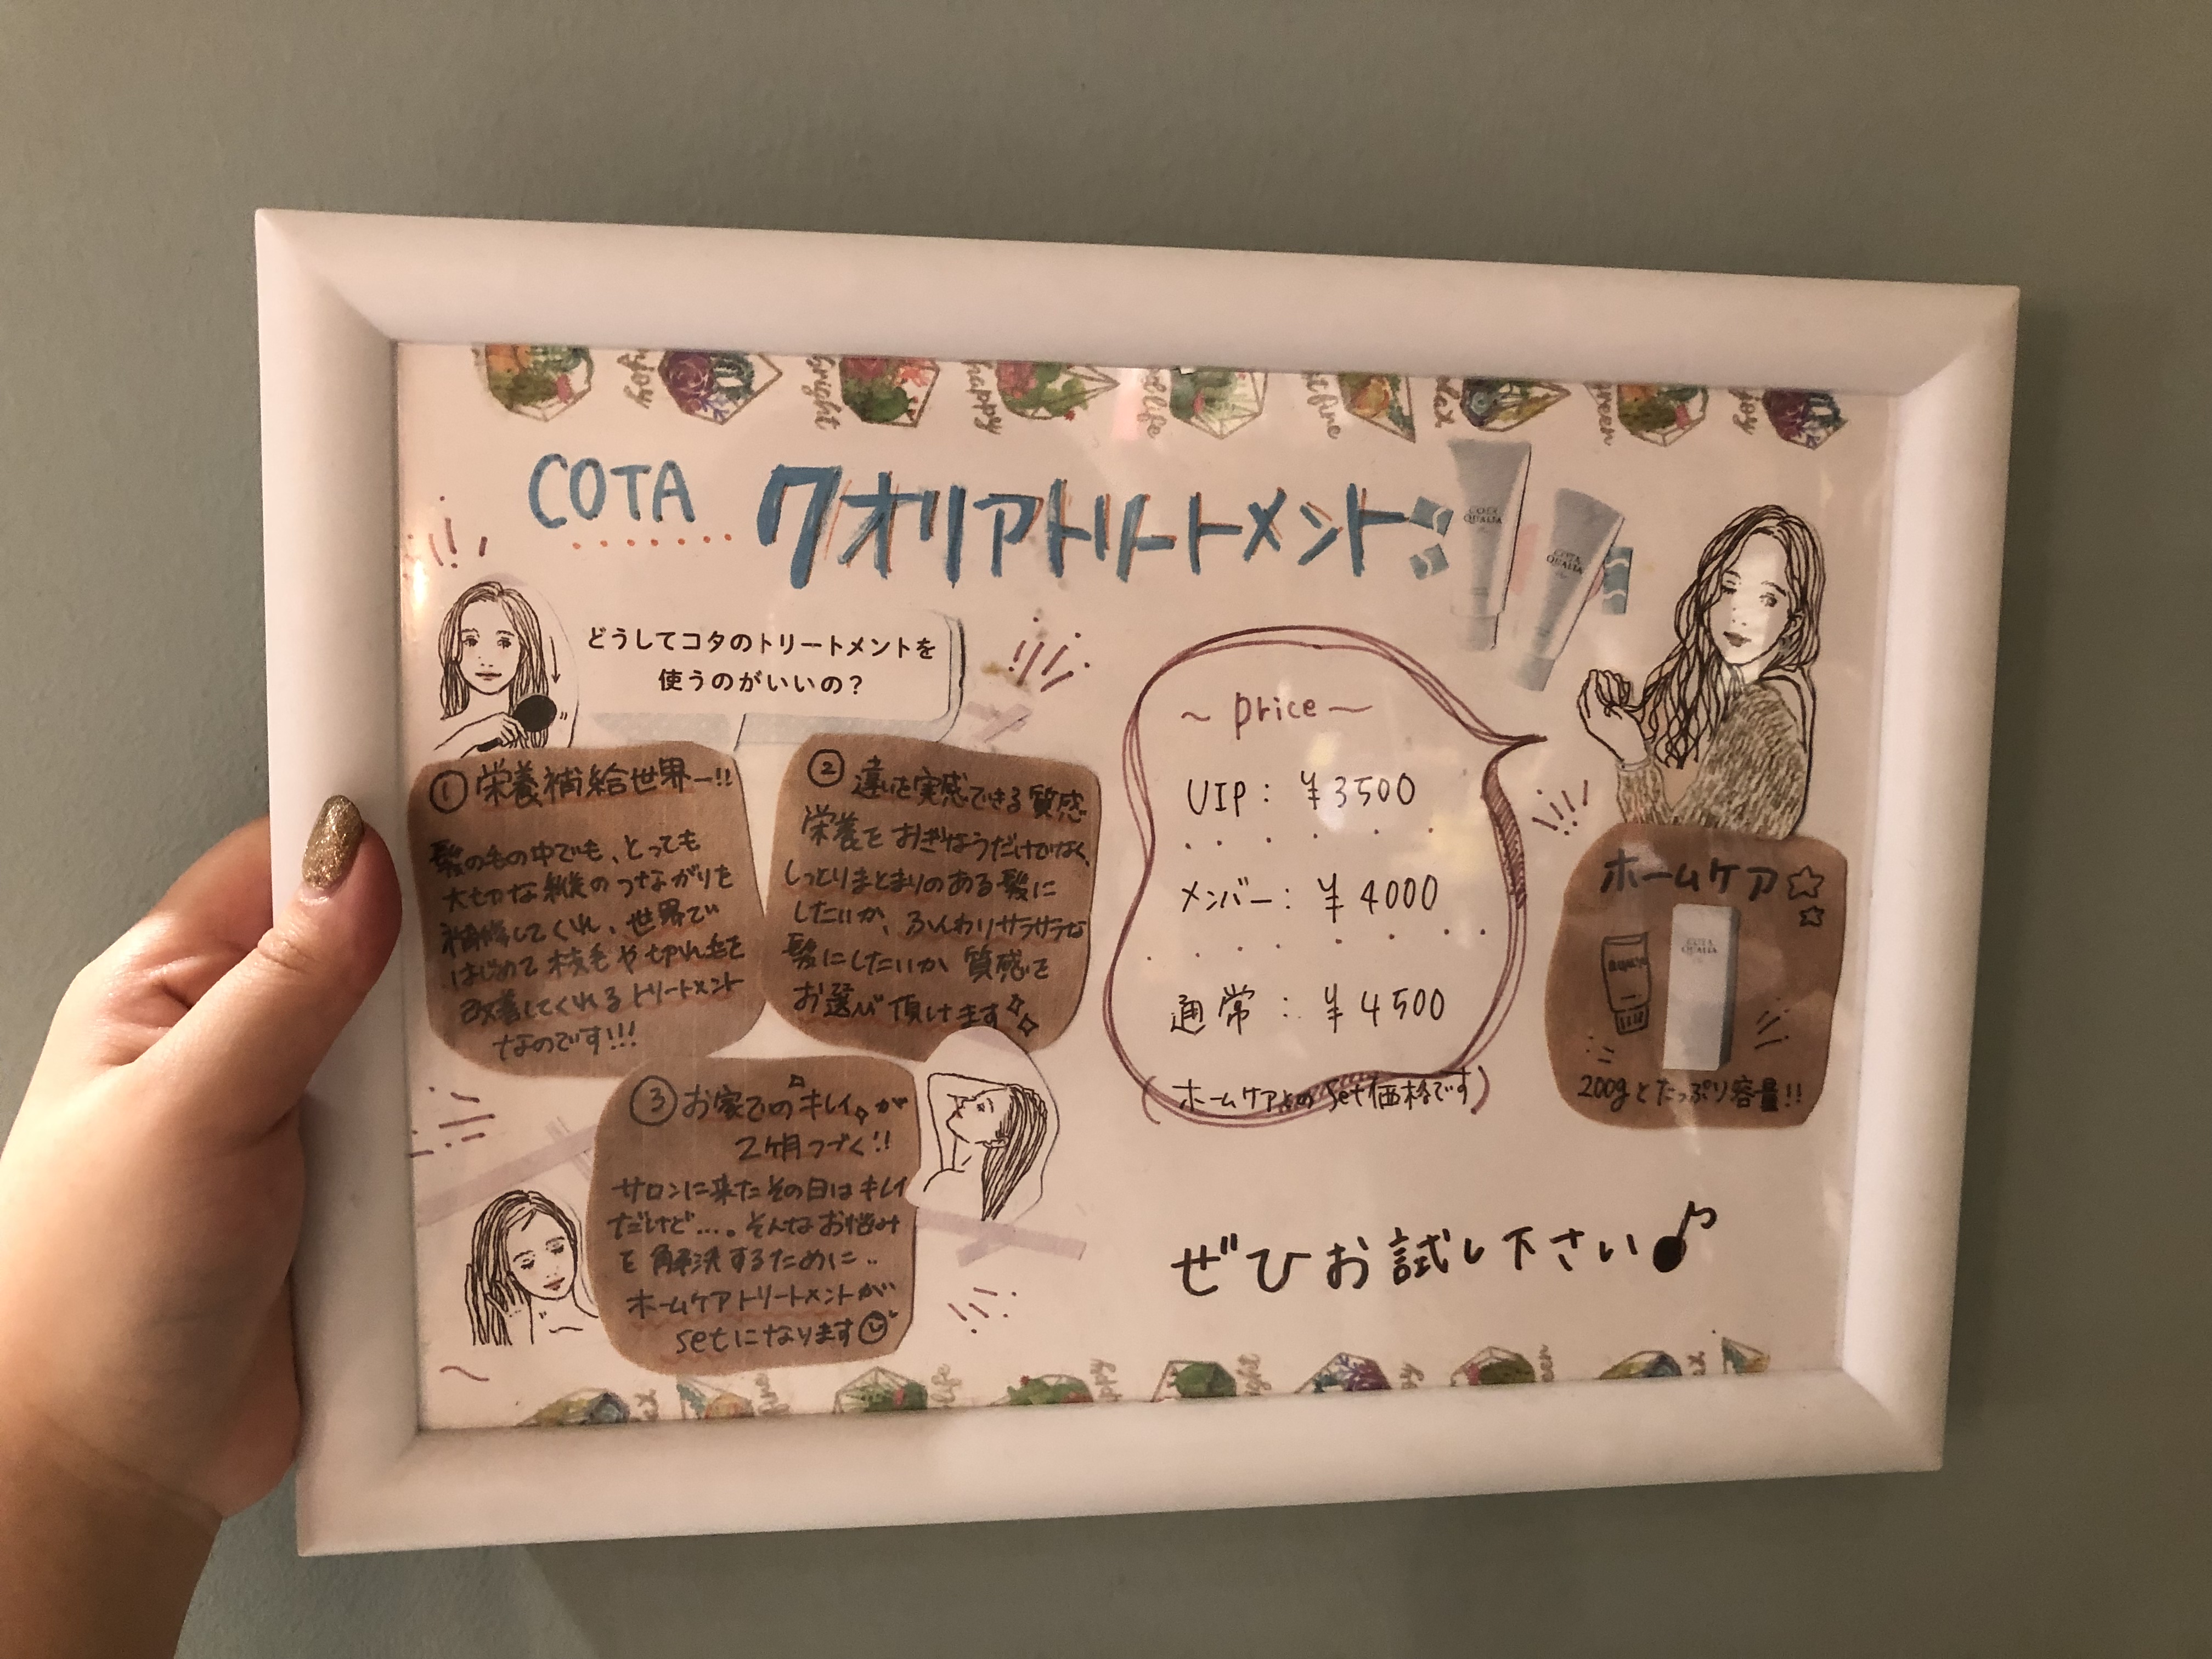 joy
bright
happy
life
fine
green
joy
COTA クオリアトリートメント
COTA
QUALIA
COTA
QUALIA
どうしてコタのトリートメントを
使うのがいいの？
① 栄養補給世界一!!
髪の毛の中でも、とっても
大切な縦のつながりを
補修してくれ、世界で
はじめて枝毛や切れ毛を
改善してくれるトリートメント
なのです!!!
② 違いを実感できる質感
栄養をおぎなうだけでなく、
しっとりまとまりのある髪に
したいか、ふんわりサラサラな
髪にしたいか 質感を
お選び頂けます
③ お家でのキレイが
2ヶ月つづく!!
サロンに来たその日はキレイ
だけど…。そんなお悩み
を解決するために..
ホームケアトリートメントが
setになります
~ price ~
VIP: ¥3500
メンバー: ¥4000
通常: ¥4500
(ホームケアとのset価格です)
ホームケア☆☆
COTA
QUALIA
200gとたっぷり容量!!
ぜひお試し下さい♪
life